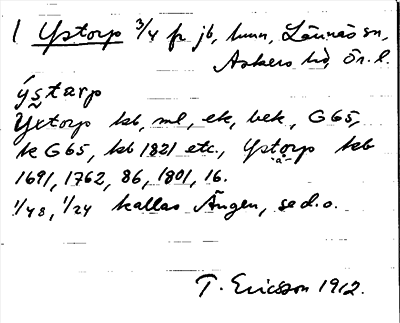 1 Ystorp 3/4 fr jb, hmn, Lännäs sn,
Askers hd, Ör. l.
ýstarp
Yxtorp kb, ml, ek, bek, G65,
k G65, kb 1821 etc., Ystorp kb
1691, 1762, 86, 1801, 16.
1/48, 1/24 kallas Ängen, se d.o.
T. Ericsson 1912.